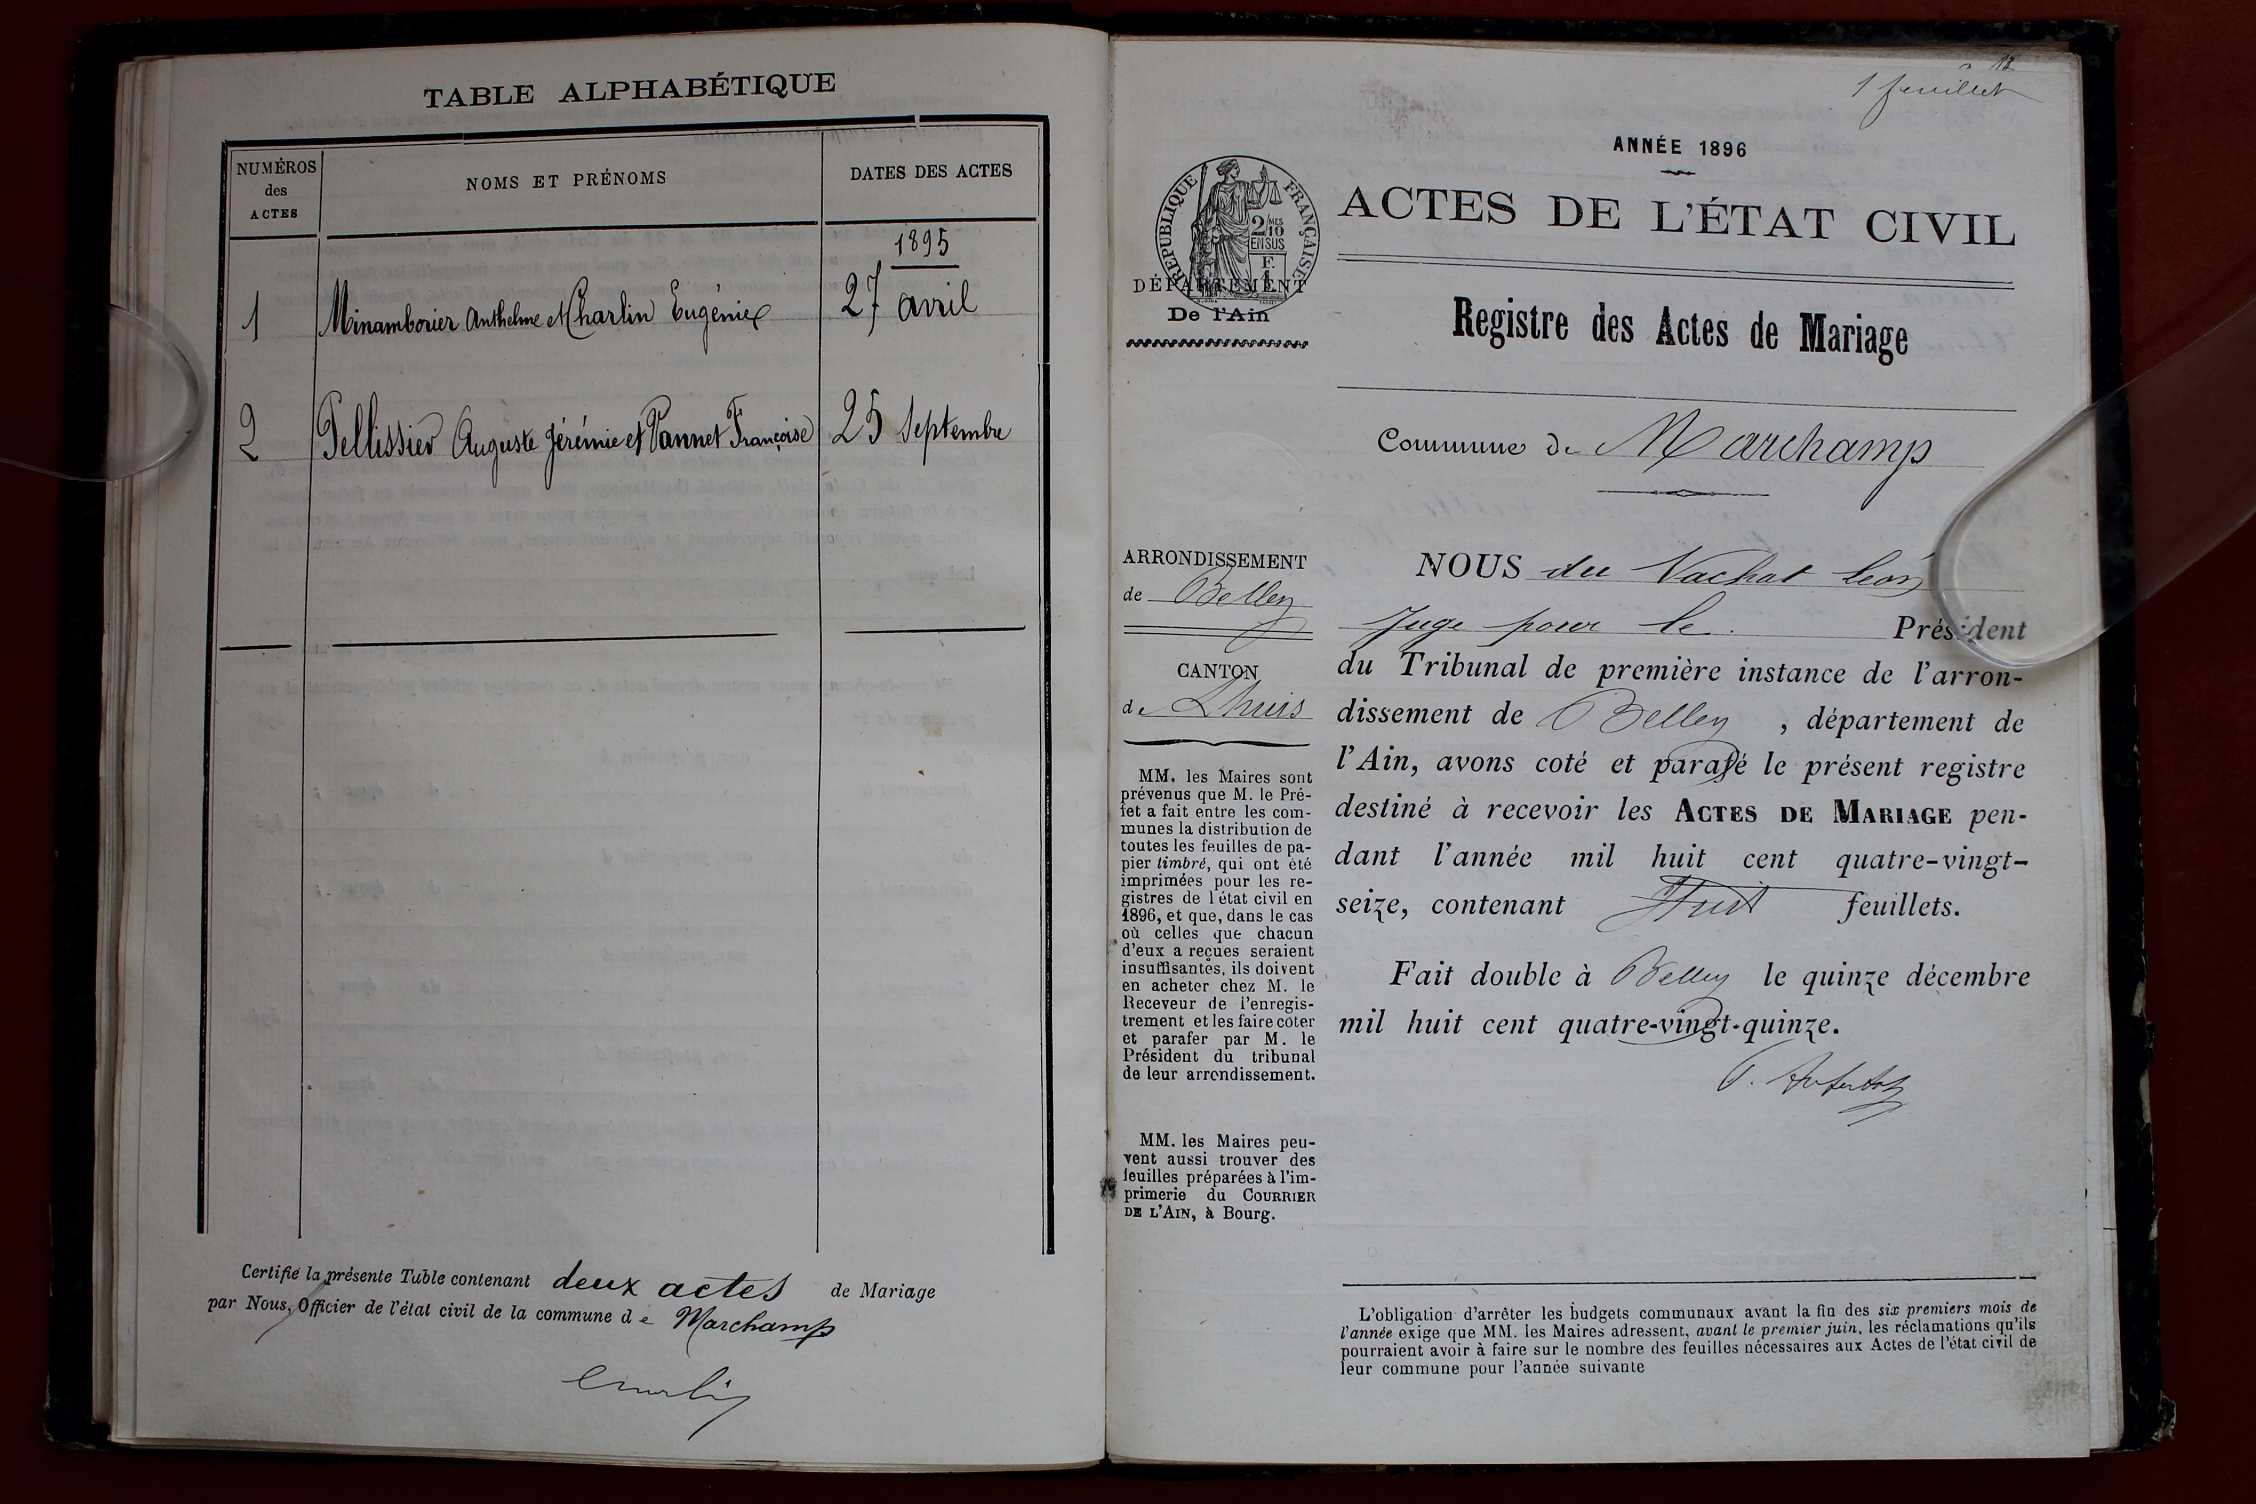 TABLE ALPHABÉTIQUE
NUMÉROS
des
ACTES
NOMS ET PRÉNOMS
DATES DES ACTES
1895
1 Minamborier Anthelme et Charlin Eugénie 27 avril
2 Pellissier Auguste Jérémie et Pannet Françoise 25 Septembre
Certifié la présente Table contenant deux actes de Mariage
par Nous, Officier de l'état civil de la commune de Marchamp
1 feuillet
ANNÉE 1896
RÉPUBLIQUE FRANÇAISE
2/10 MES
EN SUS
F.
1
DÉPARTEMENT
De l'Ain
ACTES DE L'ÉTAT CIVIL
Registre des Actes de Mariage
Commune de Marchamp
ARRONDISSEMENT
de Belley
CANTON
de Lhuis
MM. les Maires sont
prévenus que M. le Pré-
fet a fait entre les com-
munes la distribution de
toutes les feuilles de pa-
pier timbré, qui ont été
imprimées pour les re-
gistres de l'état civil en
1896, et que, dans le cas
où celles que chacun
d'eux a reçues seraient
insuffisantes, ils doivent
en acheter chez M. le
Receveur de l'enregis-
trement et les faire coter
et parafer par M. le
Président du tribunal
de leur arrondissement.
MM. les Maires peu-
vent aussi trouver des
feuilles préparées à l'im-
primerie du COURRIER
DE L'AIN, à Bourg.
NOUS du Vachat Léon
Juge pour le Président
du Tribunal de première instance de l'arron-
dissement de Belley, département de
l'Ain, avons coté et parafé le présent registre
destiné à recevoir les ACTES DE MARIAGE pen-
dant l'année mil huit cent quatre-vingt-
seize, contenant Huit feuillets.
Fait double à Belley le quinze décembre
mil huit cent quatre-vingt-quinze.
L'obligation d'arrêter les budgets communaux avant la fin des six premiers mois de
l'année exige que MM. les Maires adressent, avant le premier juin, les réclamations qu'ils
pourraient avoir à faire sur le nombre des feuilles nécessaires aux Actes de l'état civil de
leur commune pour l'année suivante